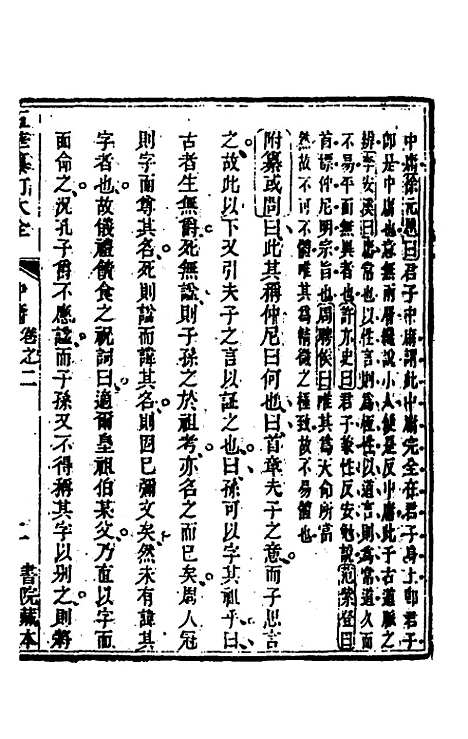 中庸徐元扈曰君子中庸謂此中庸完全在君子身上卽君子
卽是中庸也意無兩層纔說小人便是反中庸此子古道脈之
辨李安溪曰庸常也以性言則爲極性以道言則爲常道久而
不易平而無異者也許东史曰君子兼性反安勉說范紫登曰
首標仲尼明宗旨也周聘侯曰唯其爲天命所當
然故不可不體唯其爲精微之極致故不易體也
附纂或問曰此其稱仲尼曰何也曰首章夫子之意而子思言
之故此以下又引夫子之言以証之也曰孫可以字其祖乎曰
古者生無爵死無諡則子孫之於祖考亦名之而已矣周人冠
則字而尊其名死則諡而諱其名則固已彌文矣然未有諱其
字者也故儀禮饋食之祝詞曰適爾皇祖伯某父乃直以字而
面命之况孔子爵不應諡而子孫又不得稱其字以別之則將
中庸 卷之二
二 書院藏本